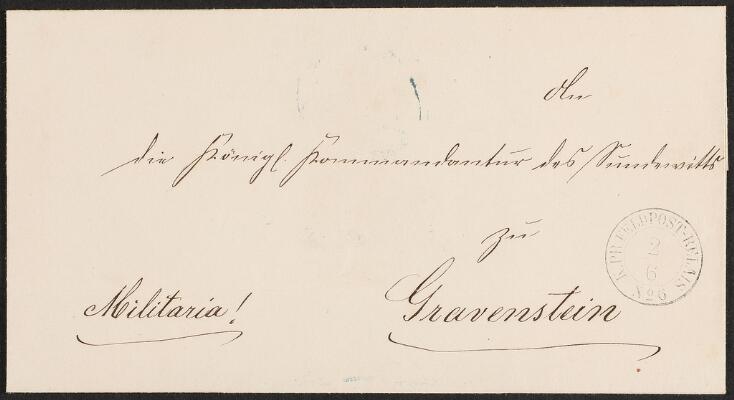 An
die Königl. Kommandantur des Sundewitts
zu
Gravenstein
Militaria!
K.PR.FELDPOST-RELAIS
2
6
No 6